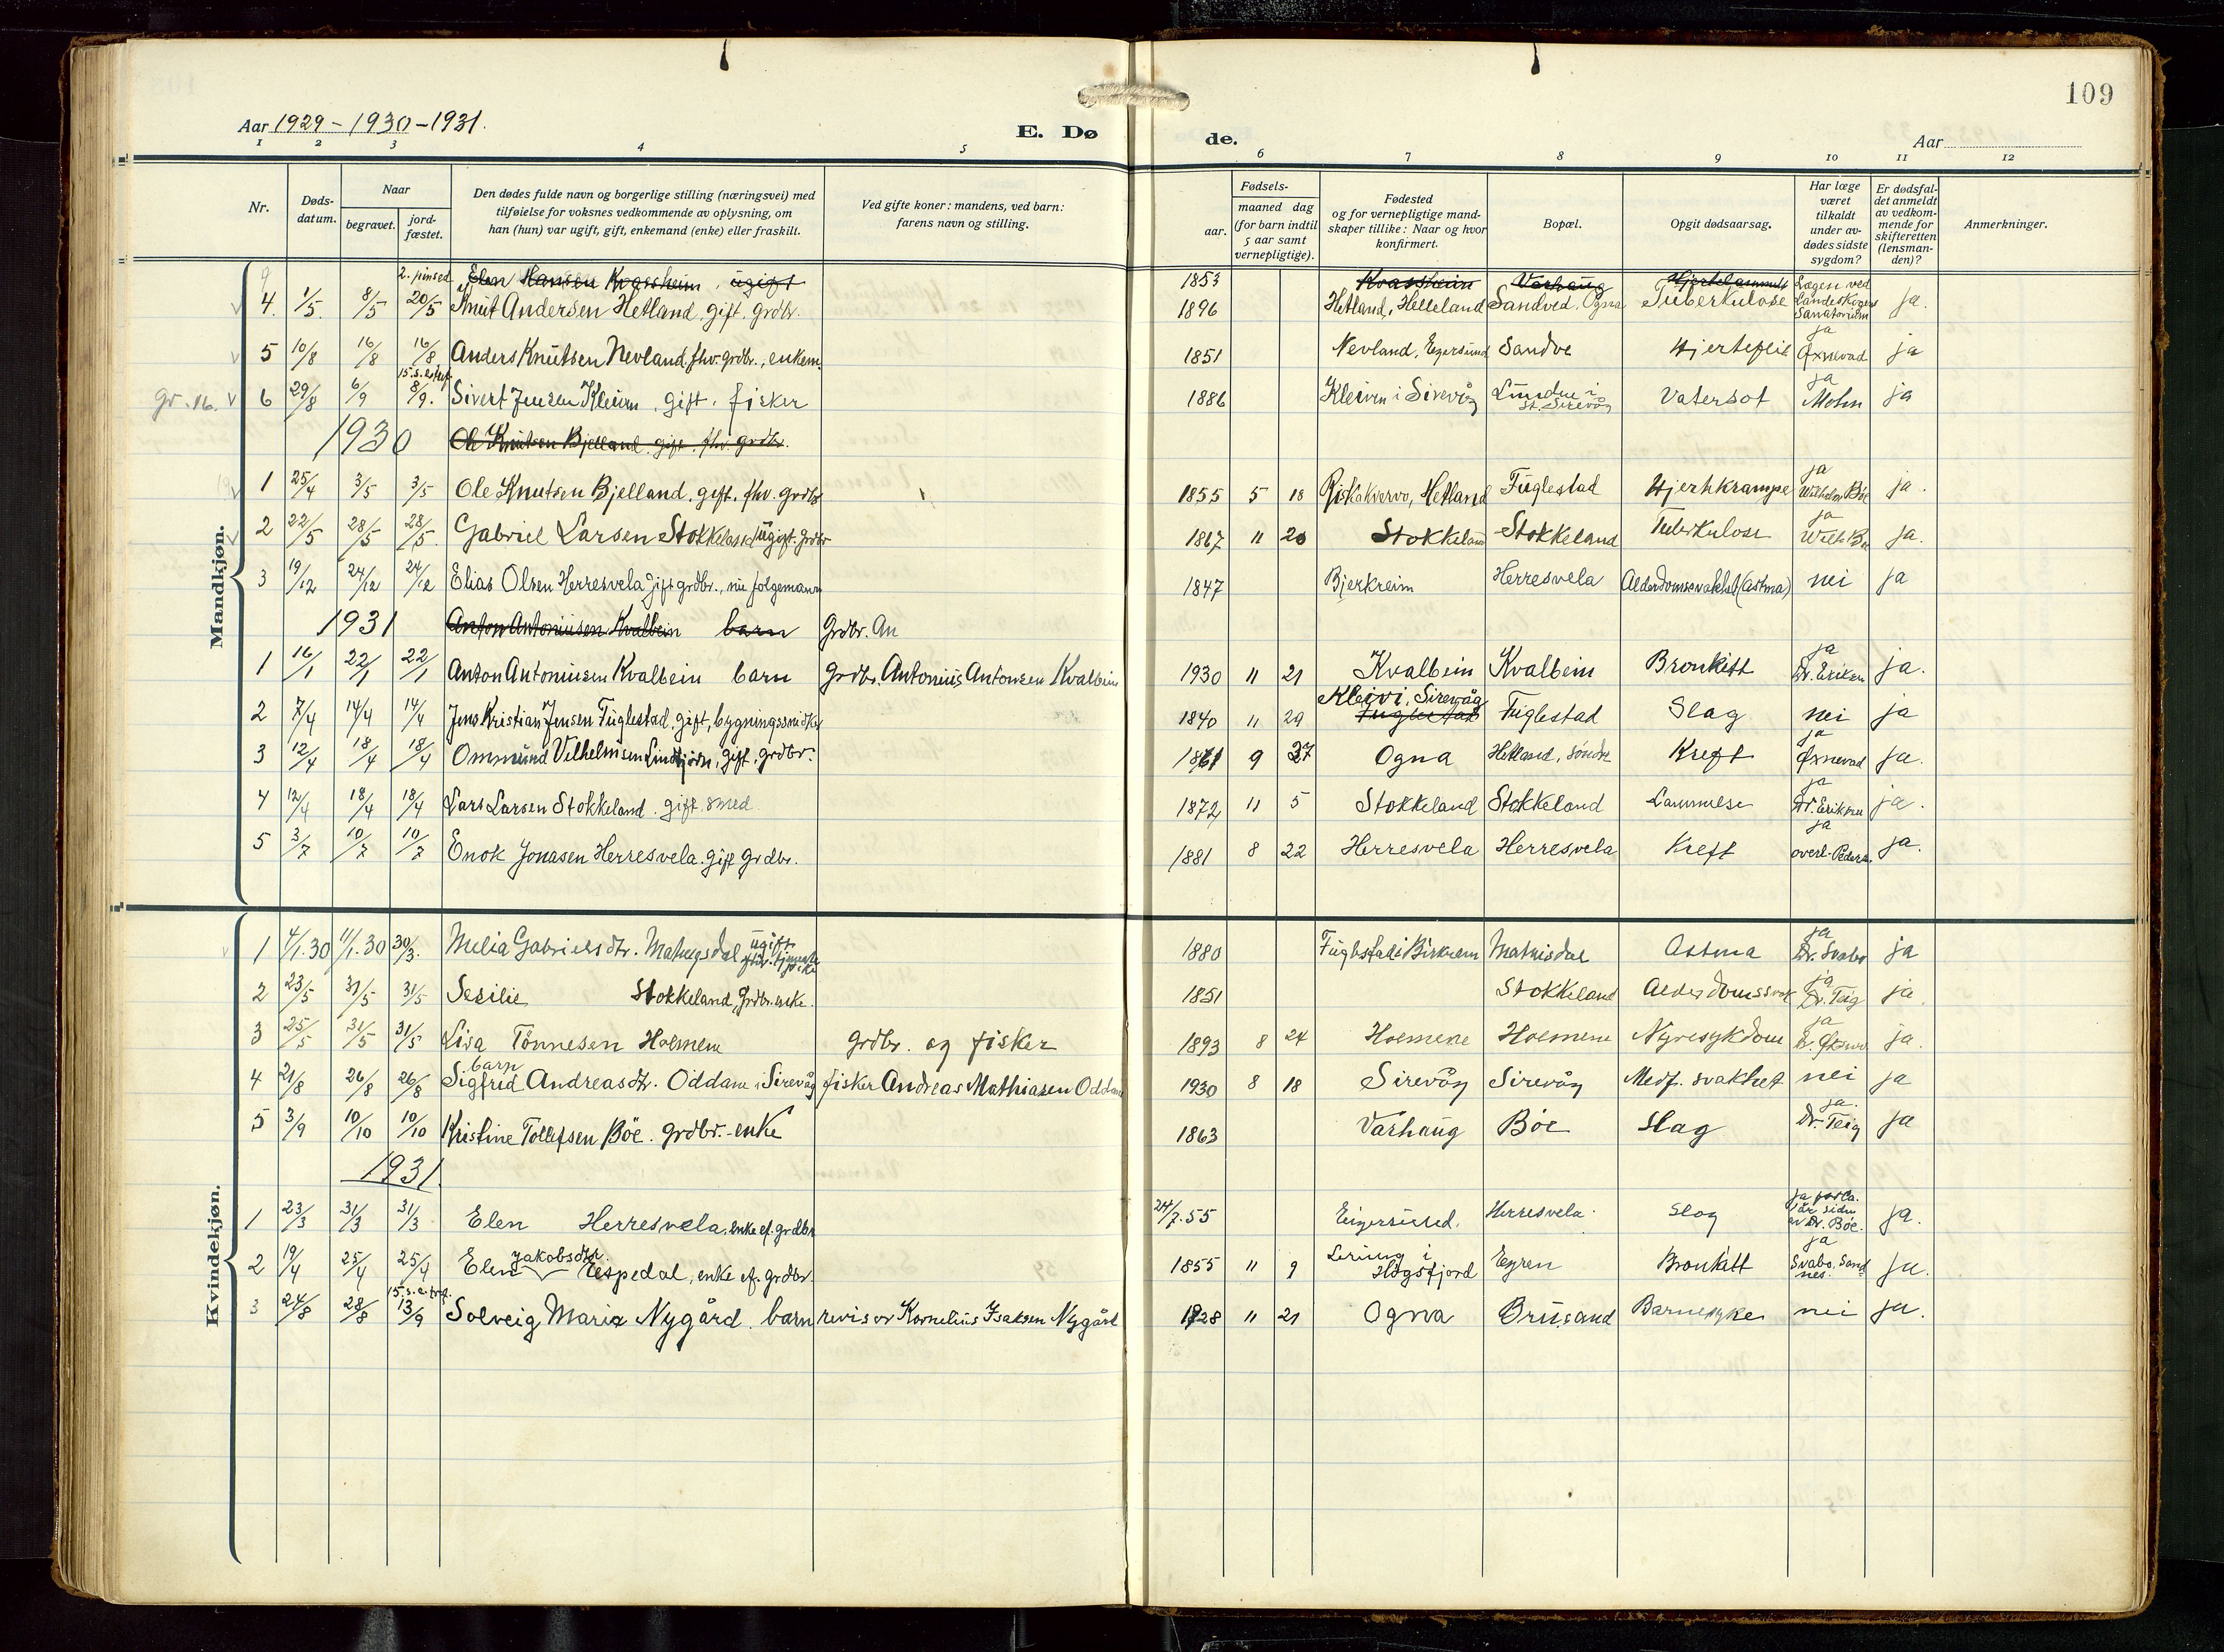 109
Aar 1929 - 1930 - 1931.
E. Dø
de.
Aar
1 2 3 4 5 6 7 8 9 10 11 12
Nr.
Døds-datum.
Naar
begravet.
jord-fæstet.
Den dødes fulde navn og borgerlige stilling (næringsvei) med tilføielse for voksnes vedkommende av oplysning, om han (hun) var ugift, gift, enkemand (enke) eller fraskilt.
Ved gifte koner: mandens, ved barn: farens navn og stilling.
Fødsels-
aar.
maaned dag
(for barn indtil 5 aar samt vernepligtige).
Fødested og for vernepligtige mand-skaper tillike: Naar og hvor konfirmert.
Bopæl.
Opgit dødsaarsag.
Har læge været tilkaldt under av-dødes sidste sygdom?
Er dødsfal-det anmeldt av vedkom-mende for skifteretten (lensman-den)?
Anmerkninger.
Mandkjøn.
Elen Hansen Kvassheim, ugift 1853 Kvassheim Varhaug
4. 1/5. 8/5 2. pinsed. 20/5 Knut Andersen Hetland, gift, grdbr. 1896 Hetland, Helleland Sandved, Ogna Tuberkulose Lægen ved Landeskogen Sanatorium ja.
5 10/8 16/8 16/8 Anders Knutsen Nevland, fhv. grdbr., enkem. 1851 Nevland, Egersund Sandve Hjertefeil ja Øxnevad ja
gr. 16. 6 29/8 6/9 8/9. Sivert Jensen Kleivn, gift, fisker 1886 Kleivn i Sirevåg Lunden i St. Sirevåg Vatersot ja Mohn ja
1930 Ole Knutsen Bjelland, gift, fhv. grdbr.
1 25/4 3/5 3/5 Ole Knutsen Bjelland, gift, fhv. grdbr 1855 5 18 Hetland Fuglestad Hjertekrampe ja Wilhelm Bøe ja.
2 22/5 28/5 28/5. Gabriel Larsen Stokkeland ugift. grdbr 1867 11 20 Stokkeland Stokkeland Tuberkulose ja Wilh. Bøe ja.
3 19/12 24/12 24/12 Elias Olsen Herresvela gift grdbr., nu folgemann 1847 Bjerkreim Herresvela Alderdomssvakhet (astma) nei ja
1931 Anton Antoniusen Kvalbein barn Grdbr. An
1 16/1 22/1 22/1 Anton Antoniusen Kvalbein barn Grdbr. Antonius Antonsen Kvalbein 1930 11 21 Kvalbein Kvalbein Bronkitt ja Dr. Eriksen ja.
2 7/4 14/4 14/4 Jens Kristian Jensen Fuglestad, gift, bygningssnidker 1840 11 29 Kleivi, Sirevåg Fuglestad Fuglestad Slag nei ja
3 12/4 18/4 18/4 Ommund Vilhelmsen Lindtjörn, gift, grdbr. 1861 9 27 Ogna Hetland, söndre Kreft ja Øxnevad ja.
4 12/4 18/4 18/4 Lars Larsen Stokkeland. gift. smed 1872 11 5 Stokkeland Stokkeland Lammelse ja Dr. Eriksen ja.
5 3/7 10/7 10/7 Enok Jonasen Herresvela. gift grdbr. 1881 8 22 Herresvela Herresvela Kreft ja overl. Peders. ja.
Kvindekjøn.
1 4/1.30 11/1.30 30/3. Melia Gabrielsdtr. ugift 1880 Fuglestad i Birkrem Mathisdal Astma ja Dr. Svabo ja
2 23/5 31/5 31/5 Sesilie Stokkeland, Grdbr. enke. 1851 Stokkeland Alderdomssvak ja Dr. Teig ja
3 25/5 31/5 31/5 Lisa Tönnesen Holmene grdbr. og fisker 1893 8 24 Holmene Holmene Nyresykdom ja ja.
4 21/8 26/8 26/8 barn Sigfred Andreasdtr. Oddane i Sirevåg fisker Andreas Mathiasen Oddane 1930 8 18 Sirevåg Sirevåg Medf. svakhet nei ja
5 3/9 10/10 10/10 Kristine Tollefsen Böe. grdbr.-enke 1863 Varhaug Böe Slag ja. Dr. Teig ja
1931
1 23/3 31/3 31/3 Elen Herresvela, enke ef. grdbr 24/7.55 Eigersund. Herresvela. Slag ja for ca. 1 år siden av Dr. Böe. ja.
2 19/4 25/4 25/4 Elen Jakobsdtr. Espedal, enke ef. grdbr. 1855 11 9 i Högsfjord Egren Bronkitt ja Svabo, Sandnes. ja.
3 24/8 28/8 15. s. e. tref. 13/9 Solveig Marie Nygård. barn revisor Kornelius Isaksen Nygård 1928 11 21 Ogna Brusand Barnesyke nei ja.